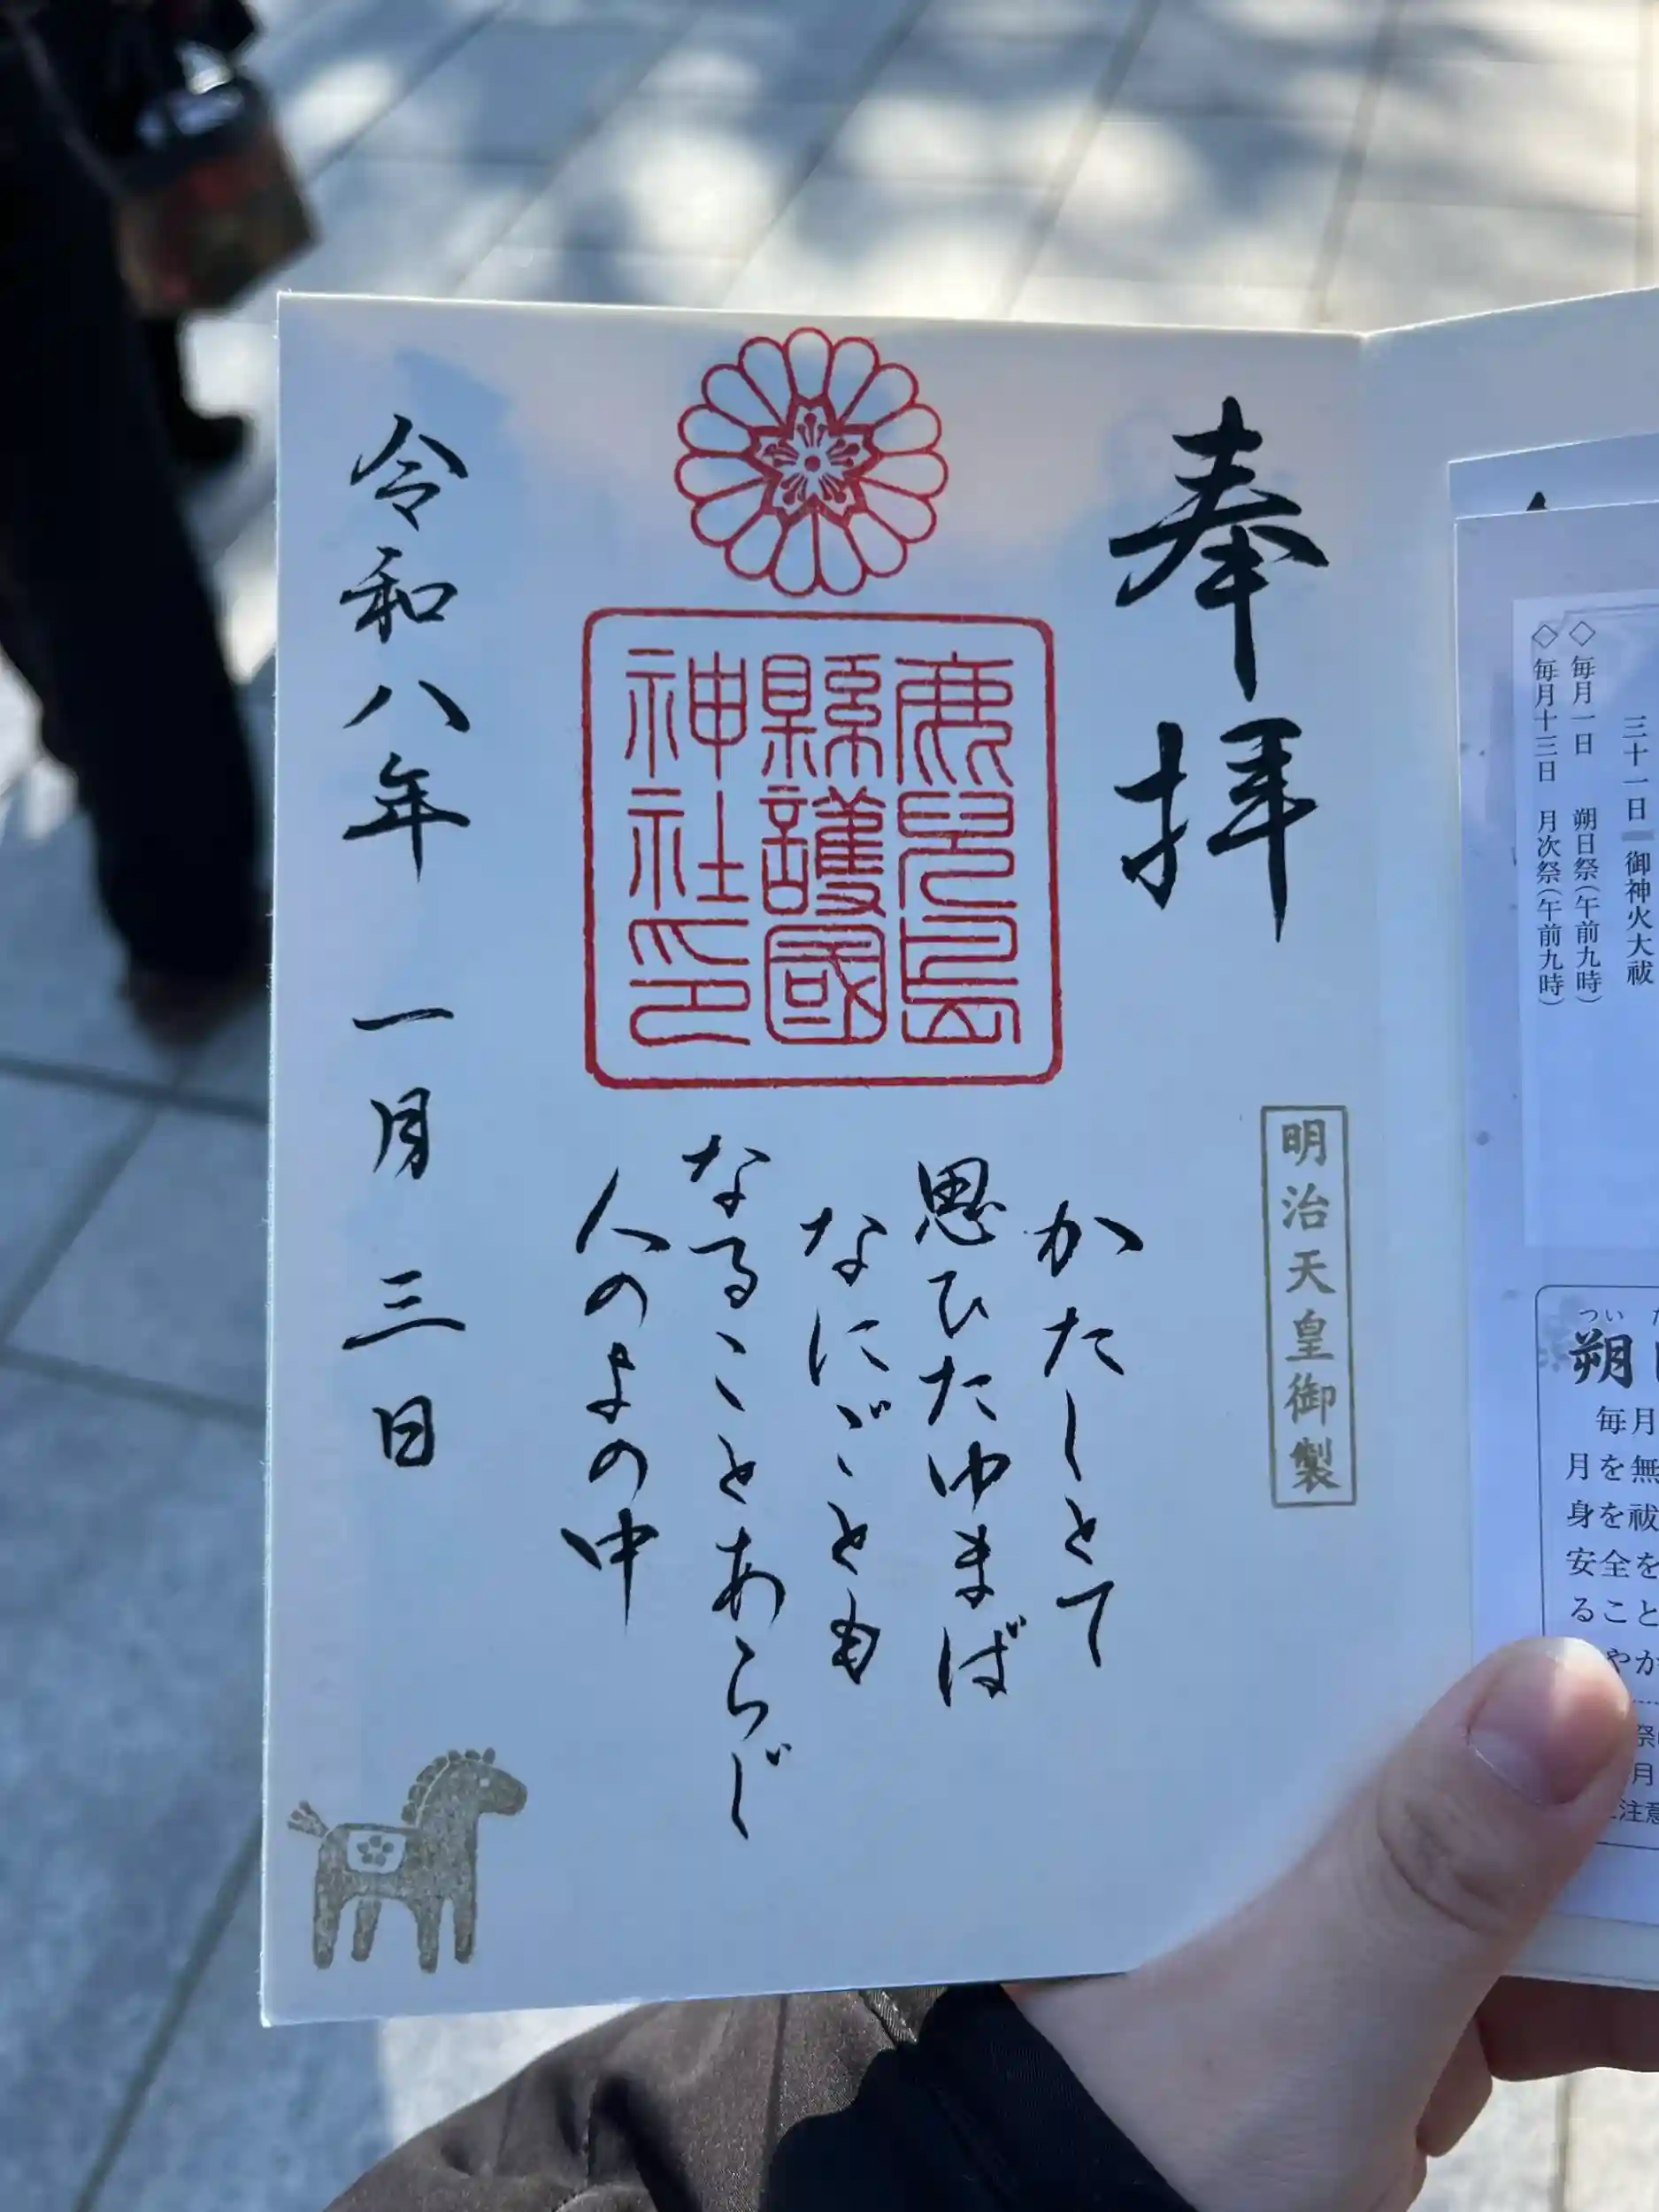 三十一日 御神火大祓
◇毎月一日 朔日祭(午前九時)
◇毎月十三日 月次祭(午前九時)
つい
朔
毎月
月を無
身を祓
安全を
ること
やか
祭
月
注意
奉拝
明治天皇御製
鹿児島
縣護國
神社印
かたしとて
思ひたゆまば
なにごとも
なることあらじ
人のよの中
令和八年 一月 三日